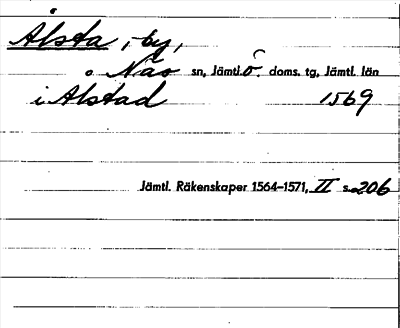 Ålsta, by,
Näs sn, Jämtl. ö. doms. tg, Jämtl. län
i Ålstad 1569
Jämtl. Räkenskaper 1564–1571, II s. 206